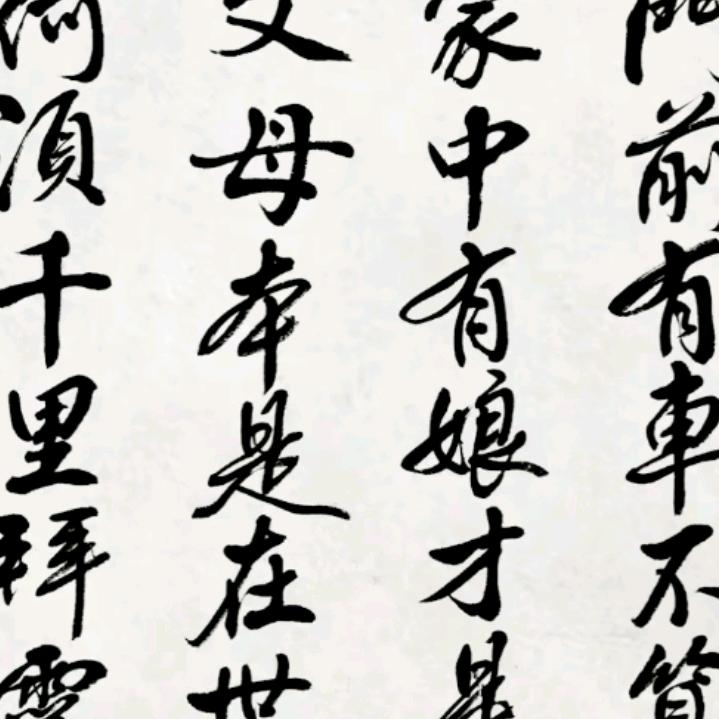 前有車不算
家中有娘才是
父母本是在世
何須千里拜靈